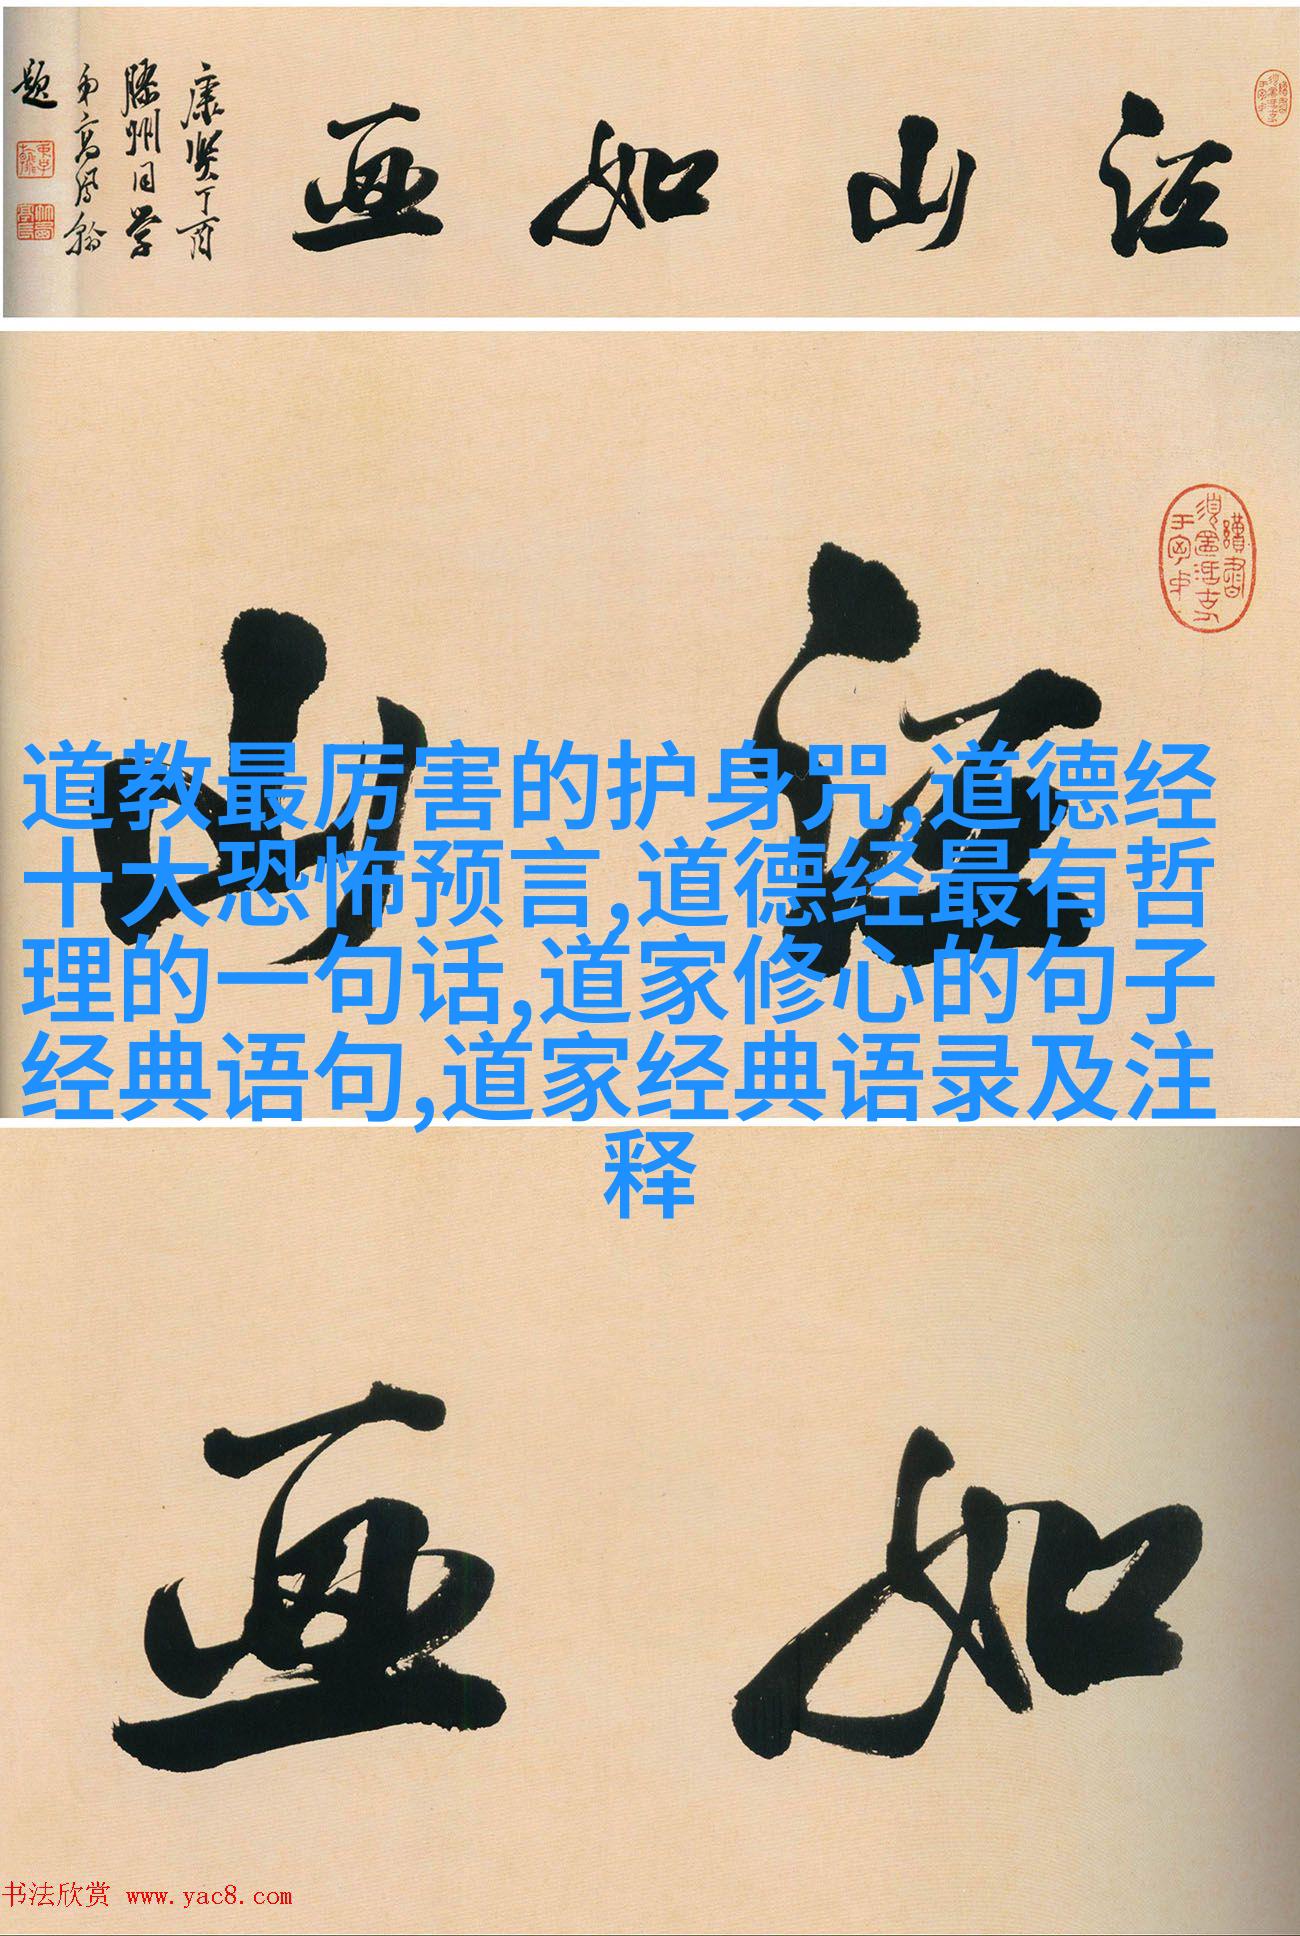 江山如画
康熙丁酉
滕州同学
弟高凤翰
题
江山
道教最厉害的护身咒,道德经
十大恐怖预言,道德经最有哲
理的一句话,道家修心的句子
经典语句,道家经典语录及注
释
如画
书法欣赏 www.yac8.com